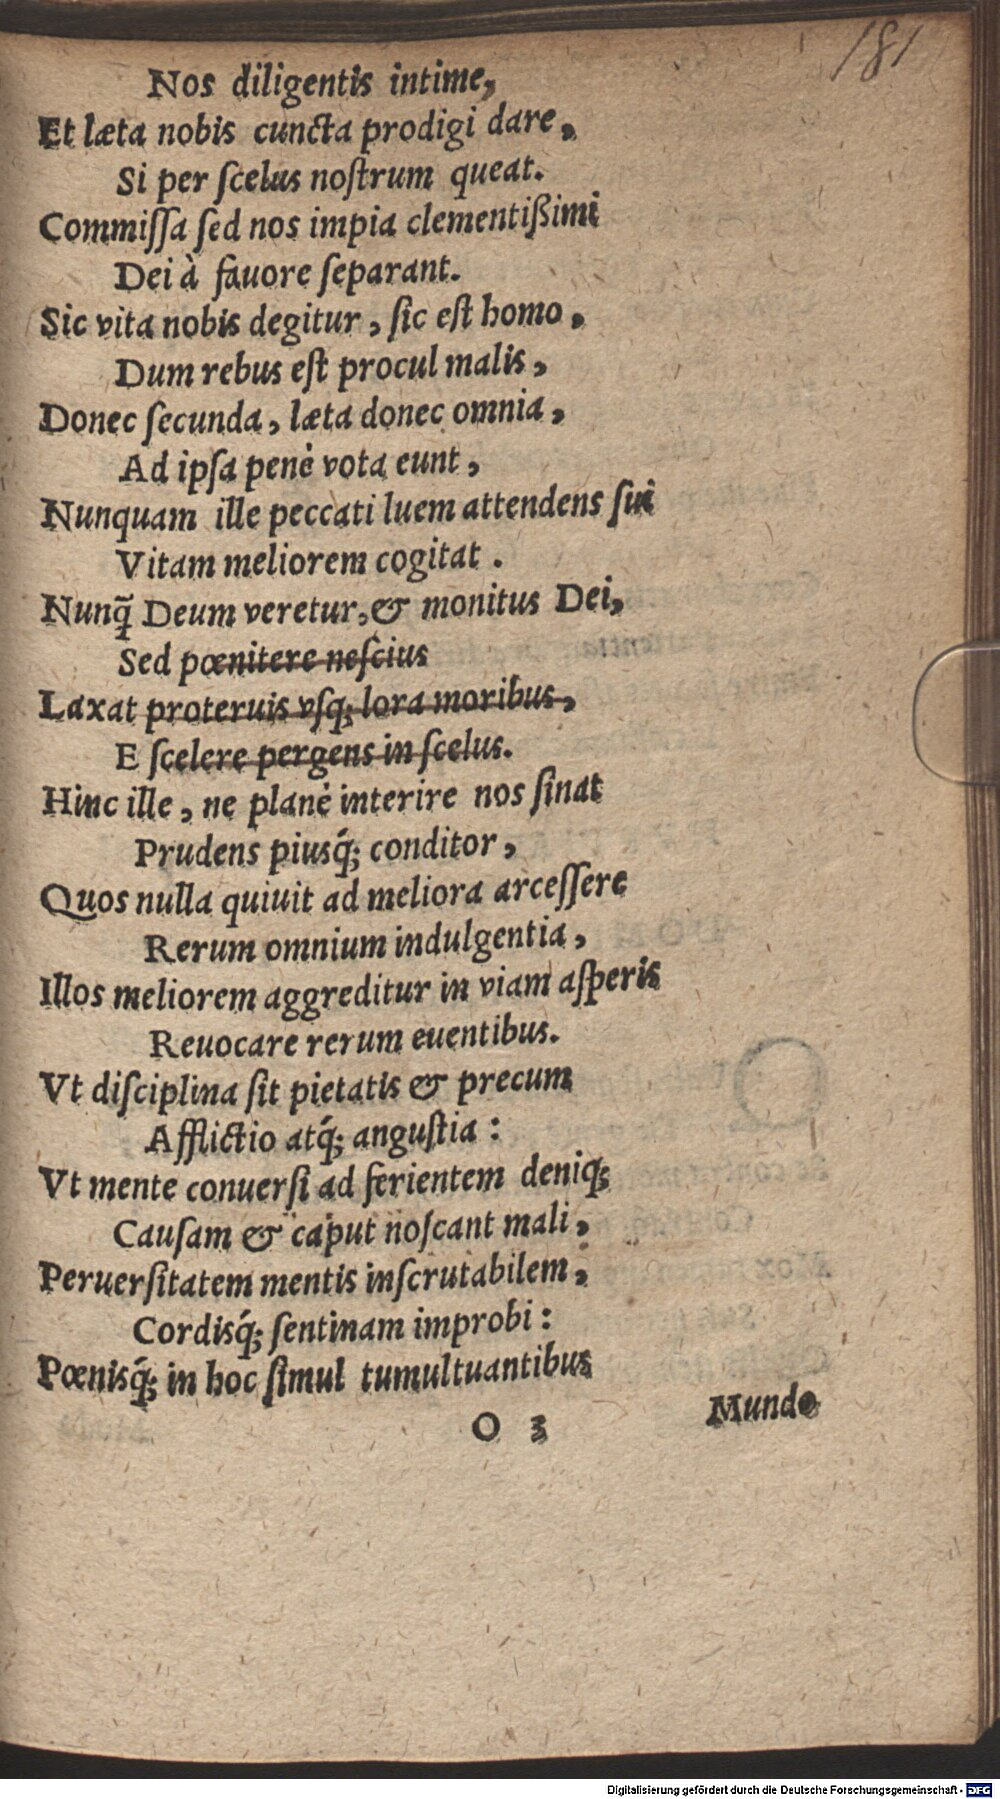 181
Nos diligentis intime,
Et læta nobis cuncta prodigi dare,
Si per ſcelus noſtrum queat.
Commiſſa ſed nos impia clementißimi
Dei à fauore ſeparant.
Sic vita nobis degitur, ſic eſt homo,
Dum rebus eſt procul malis,
Donec ſecunda, læta donec omnia,
Ad ipſa penè vota eunt,
Nunquam ille peccati luem attendens ſui
Vitam meliorem cogitat.
Nunq̃ Deum veretur, & monitus Dei,
Sed pœnitere neſcius
Laxat proteruis vſq; lora moribus,
E ſcelere pergens in ſcelus.
Hinc ille, ne planè interire nos ſinat
Prudens piusq́; conditor,
Quos nulla quiuit ad meliora arceſſere
Rerum omnium indulgentia,
Illos meliorem aggreditur in viam aſperis
Reuocare rerum euentibus.
Vt diſciplina ſit pietatis & precum
Afflictio atq́; anguſtia:
Vt mente conuerſi ad ferientem deniq;
Cauſam & caput noſcant mali,
Peruerſitatem mentis inſcrutabilem,
Cordisq́; ſentinam improbi:
Pœnisq́; in hoc ſimul tumultuantibus
O 3
Mundo
Digitalisierung gefördert durch die Deutsche Forschungsgemeinschaft - DFG